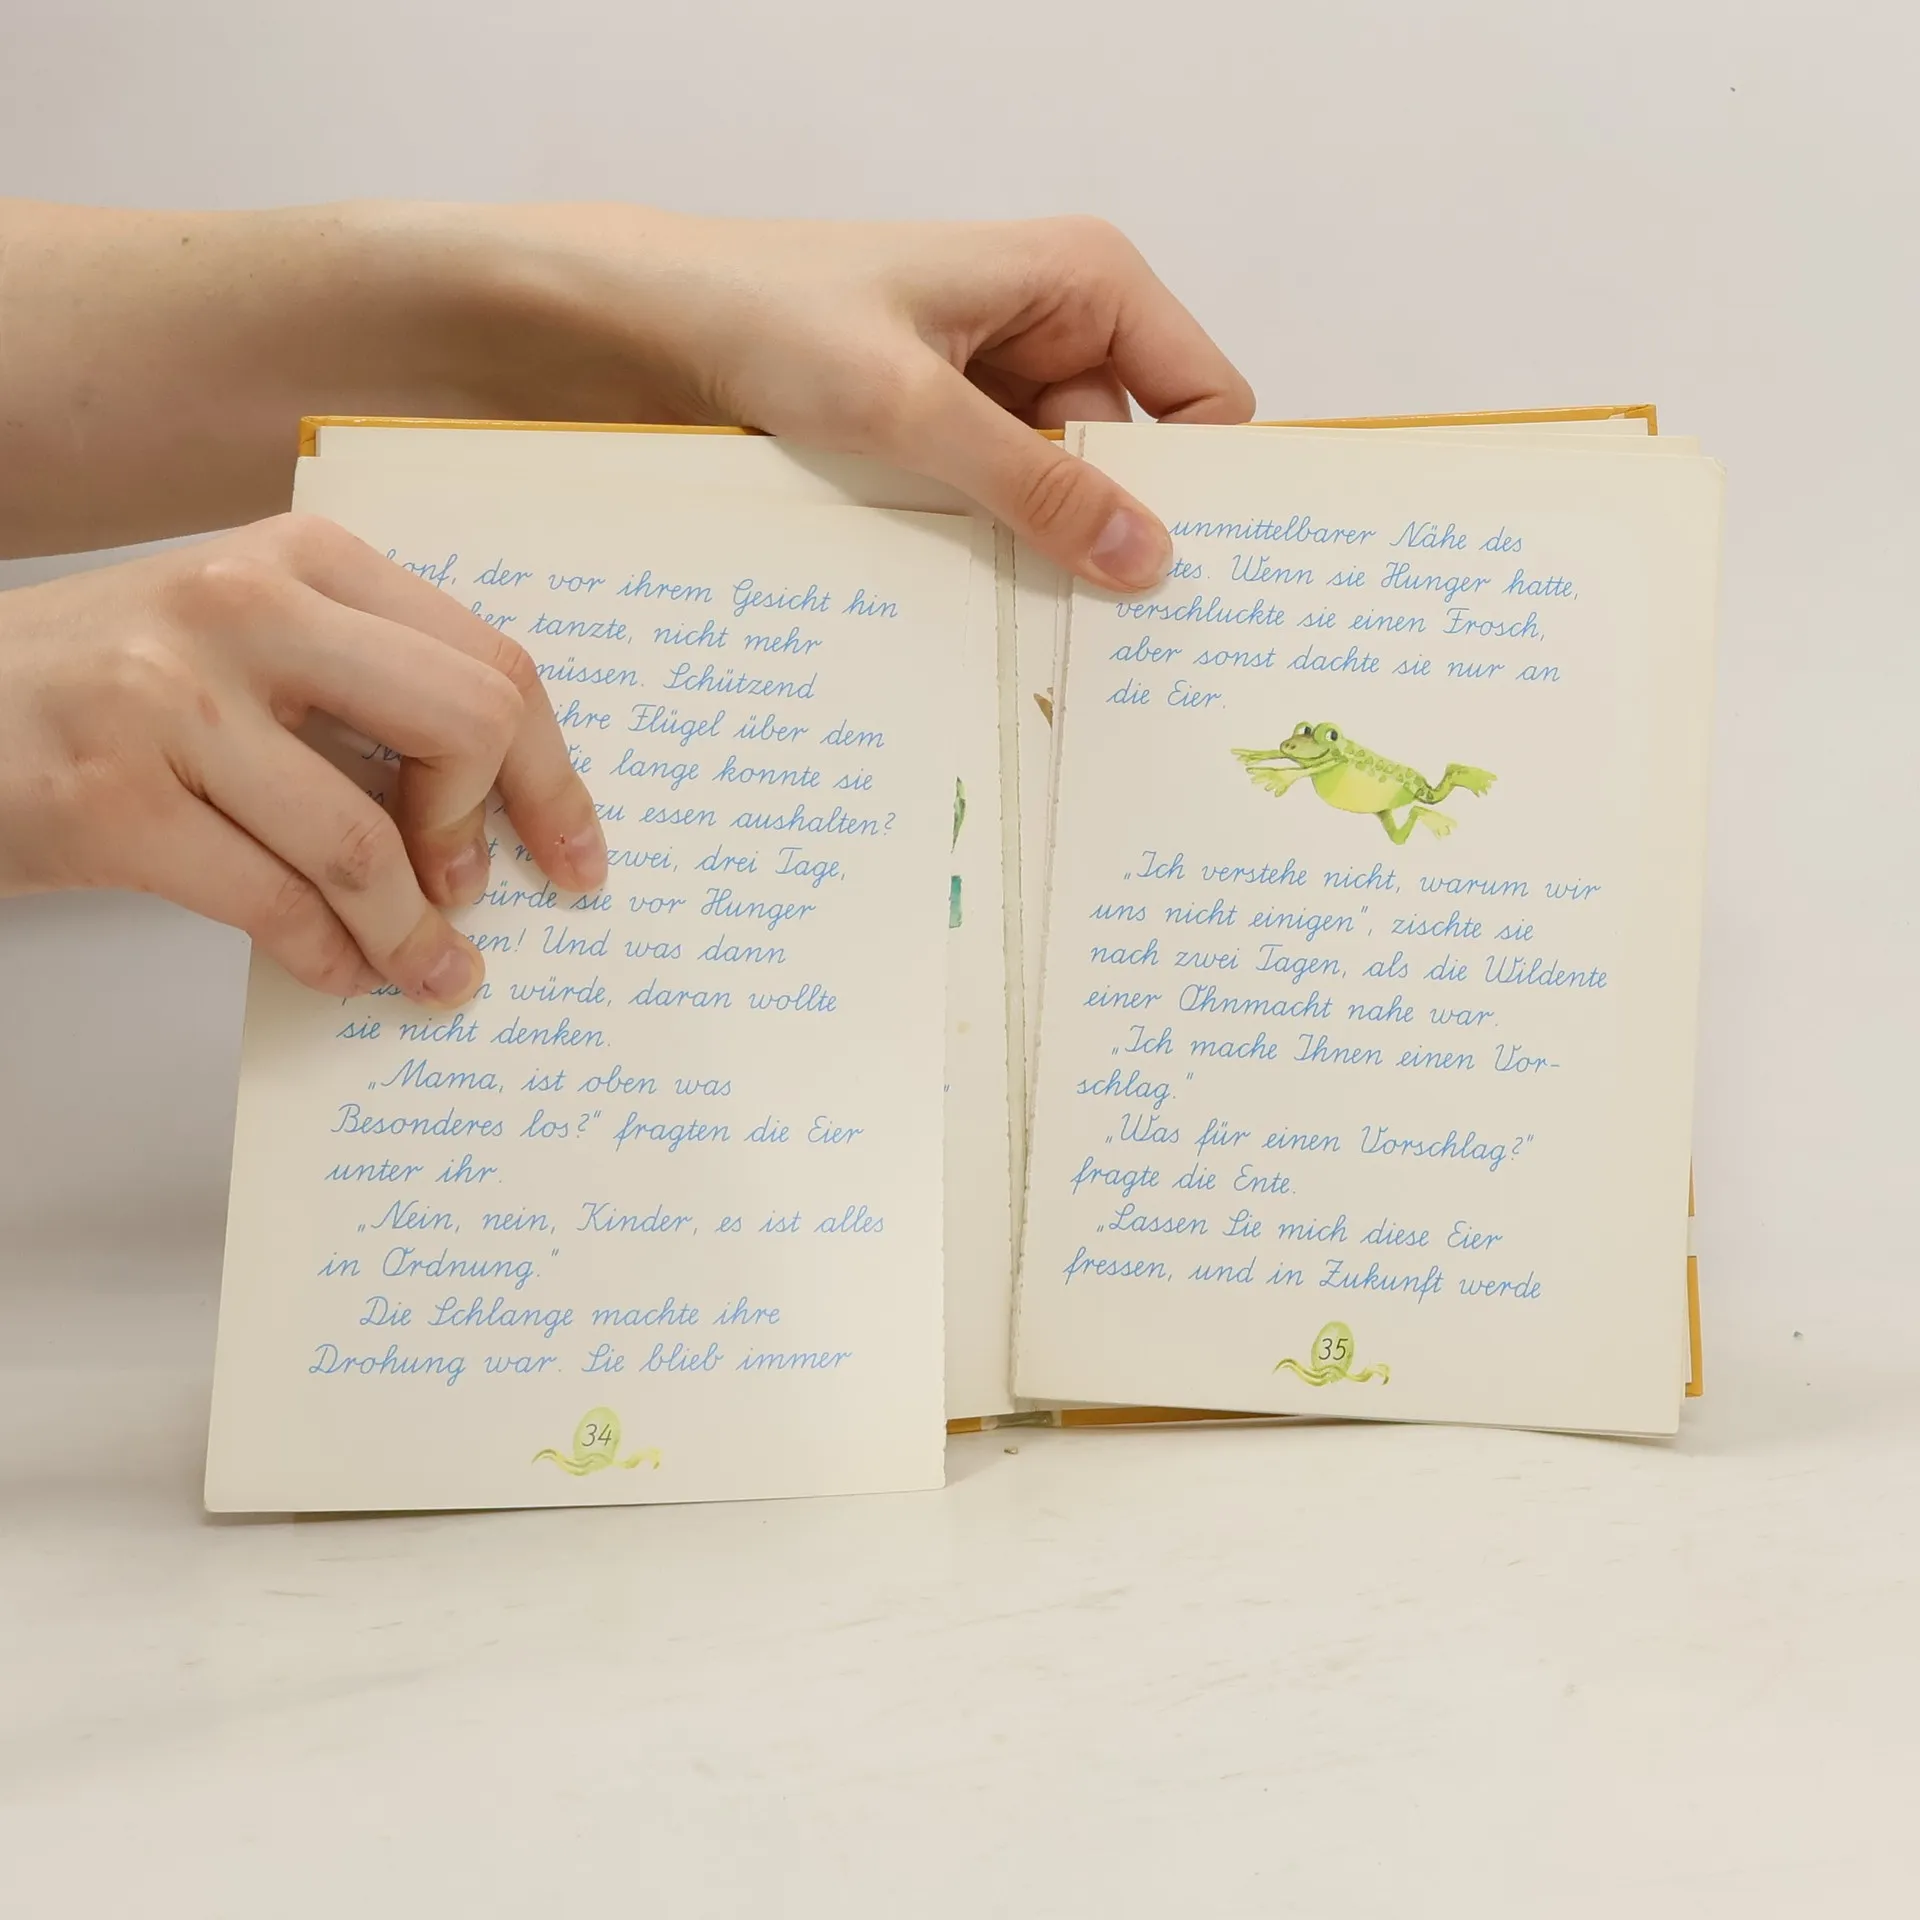 der vor ihrem Gesicht hin
tanzte, nicht mehr
müssen. Schützend
ihre Flügel über dem
lange konnte sie
zu essen aushalten?
zwei, drei Tage,
würde sie vor Hunger
Und was dann
würde, daran wollte
sie nicht denken.
„Mama, ist oben was
Besonderes los?" fragten die Eier
unter ihr.
„Nein, nein, Kinder, es ist alles
in Ordnung."
Die Schlange machte ihre
Drohung war. Sie blieb immer
34
unmittelbarer Nähe des
Wenn sie Hunger hatte,
verschluckte sie einen Frosch,
aber sonst dachte sie nur an
die Eier.
„Ich verstehe nicht, warum wir
uns nicht einigen", zischte sie
nach zwei Tagen, als die Wildente
einer Ohnmacht nahe war.
„Ich mache Ihnen einen Vor-
schlag."
„Was für einen Vorschlag?"
fragte die Ente.
„Lassen Sie mich diese Eier
fressen, und in Zukunft werde
35